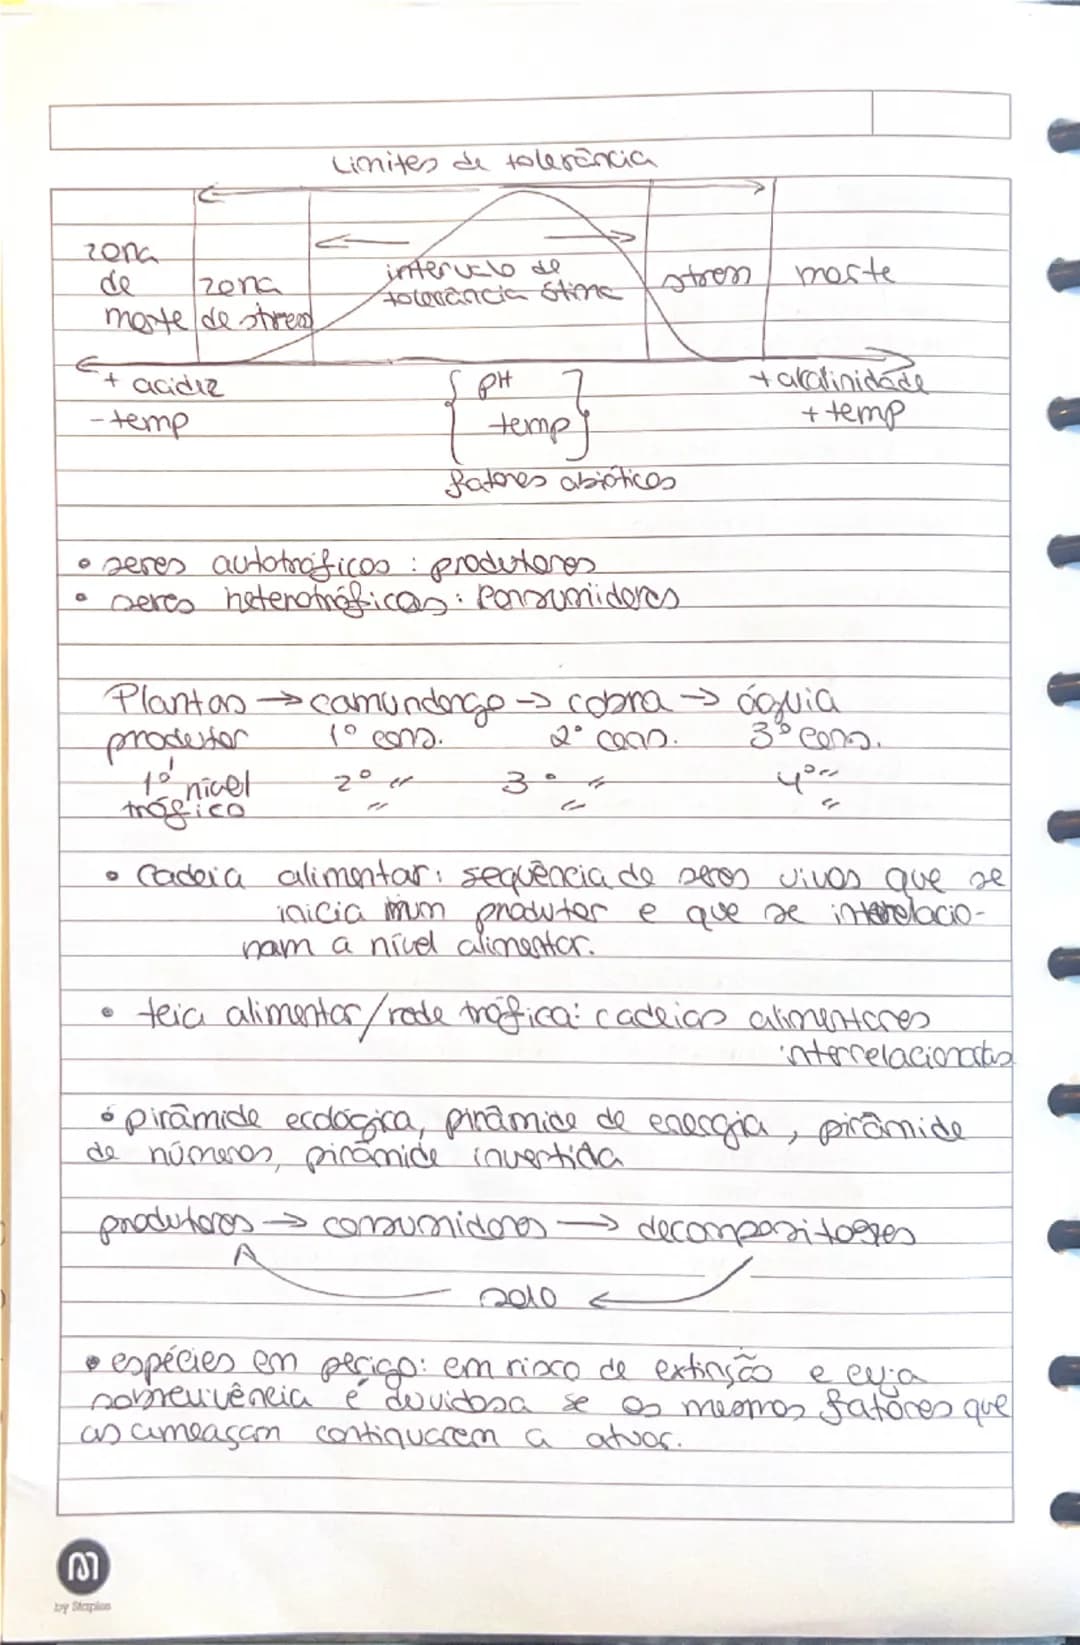 Limites de tolerância
zona
de
morte
zona
de stress
intervalo de
tolerância ótima
stress
morte
+ acidez
- temp
pH
temp
+ alcalinidade
+ temp
fatores abióticos
• seres autotróficos : produtores
• seres heterotróficos : consumidores
Plantas → camundongo → cobra → águia
produtor 1º cons. 2º cons. 3º cons.
1º nível 2º " 3º " 4º "
trófico " " "
• Cadeia alimentar: sequência de seres vivos que se
inicia num produtor e que se interrelacio-
nam a nível alimentar.
• teia alimentar/rede trófica: cadeias alimentares
interrelacionadas
• pirâmide ecológica, pirâmide de energia, pirâmide
de números, pirâmide invertida
produtores → consumidores → decompositores
solo ←
• espécies em perigo: em risco de extinção e cuja
sobrevivência é duvidosa se os mesmos fatores que
as ameaçam continuarem a atuar.
by Staples